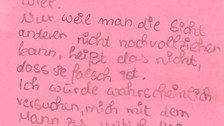 will.
Nur weil man die Sicht
anderer nicht nachvollziehen
kann, heißt das nicht,
dass sie falsch ist.
Ich würde wahrscheinlich
versuchen, mich mit dem
Mann zu